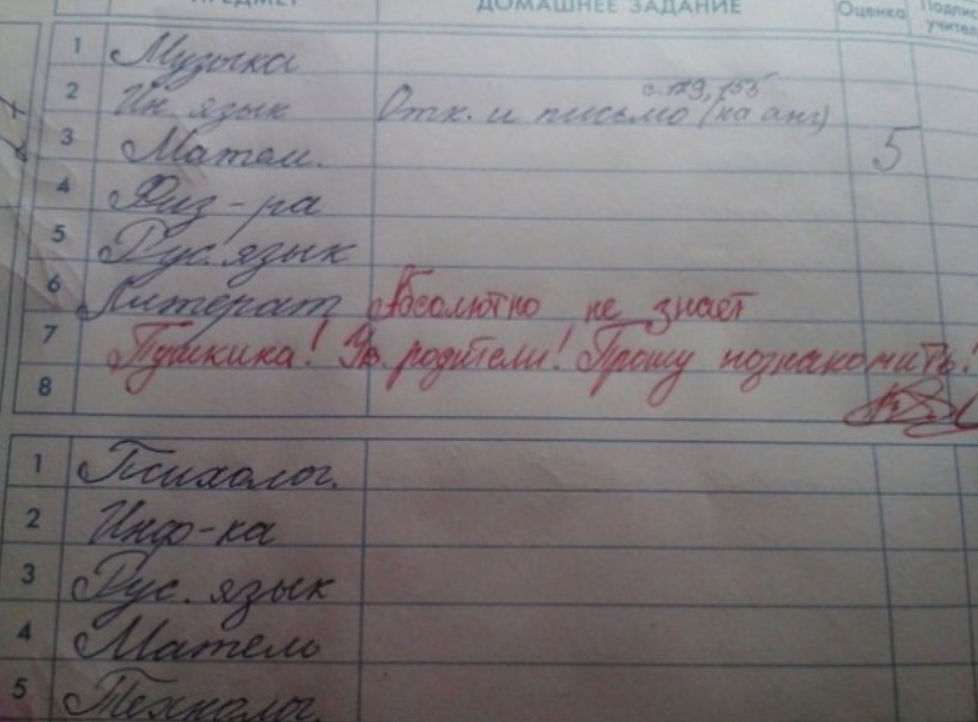 ПРЕДМЕТ ДОМАШНЕЕ ЗАДАНИЕ Оценка Подпись учител
1 Музыка
с. 129, 155
2 Ин. язык Отк. и письмо (на анг)
3 Матем. 5
4 Физ-ра
5 Рус. язык
6 Литерат Абсолютно не знает
7 Пушкина! Ув. родители! Прошу познакомить!
8
1 Психолог.
2 Инф-ка
3 Рус. язык
4 Матем
5 Технолог.